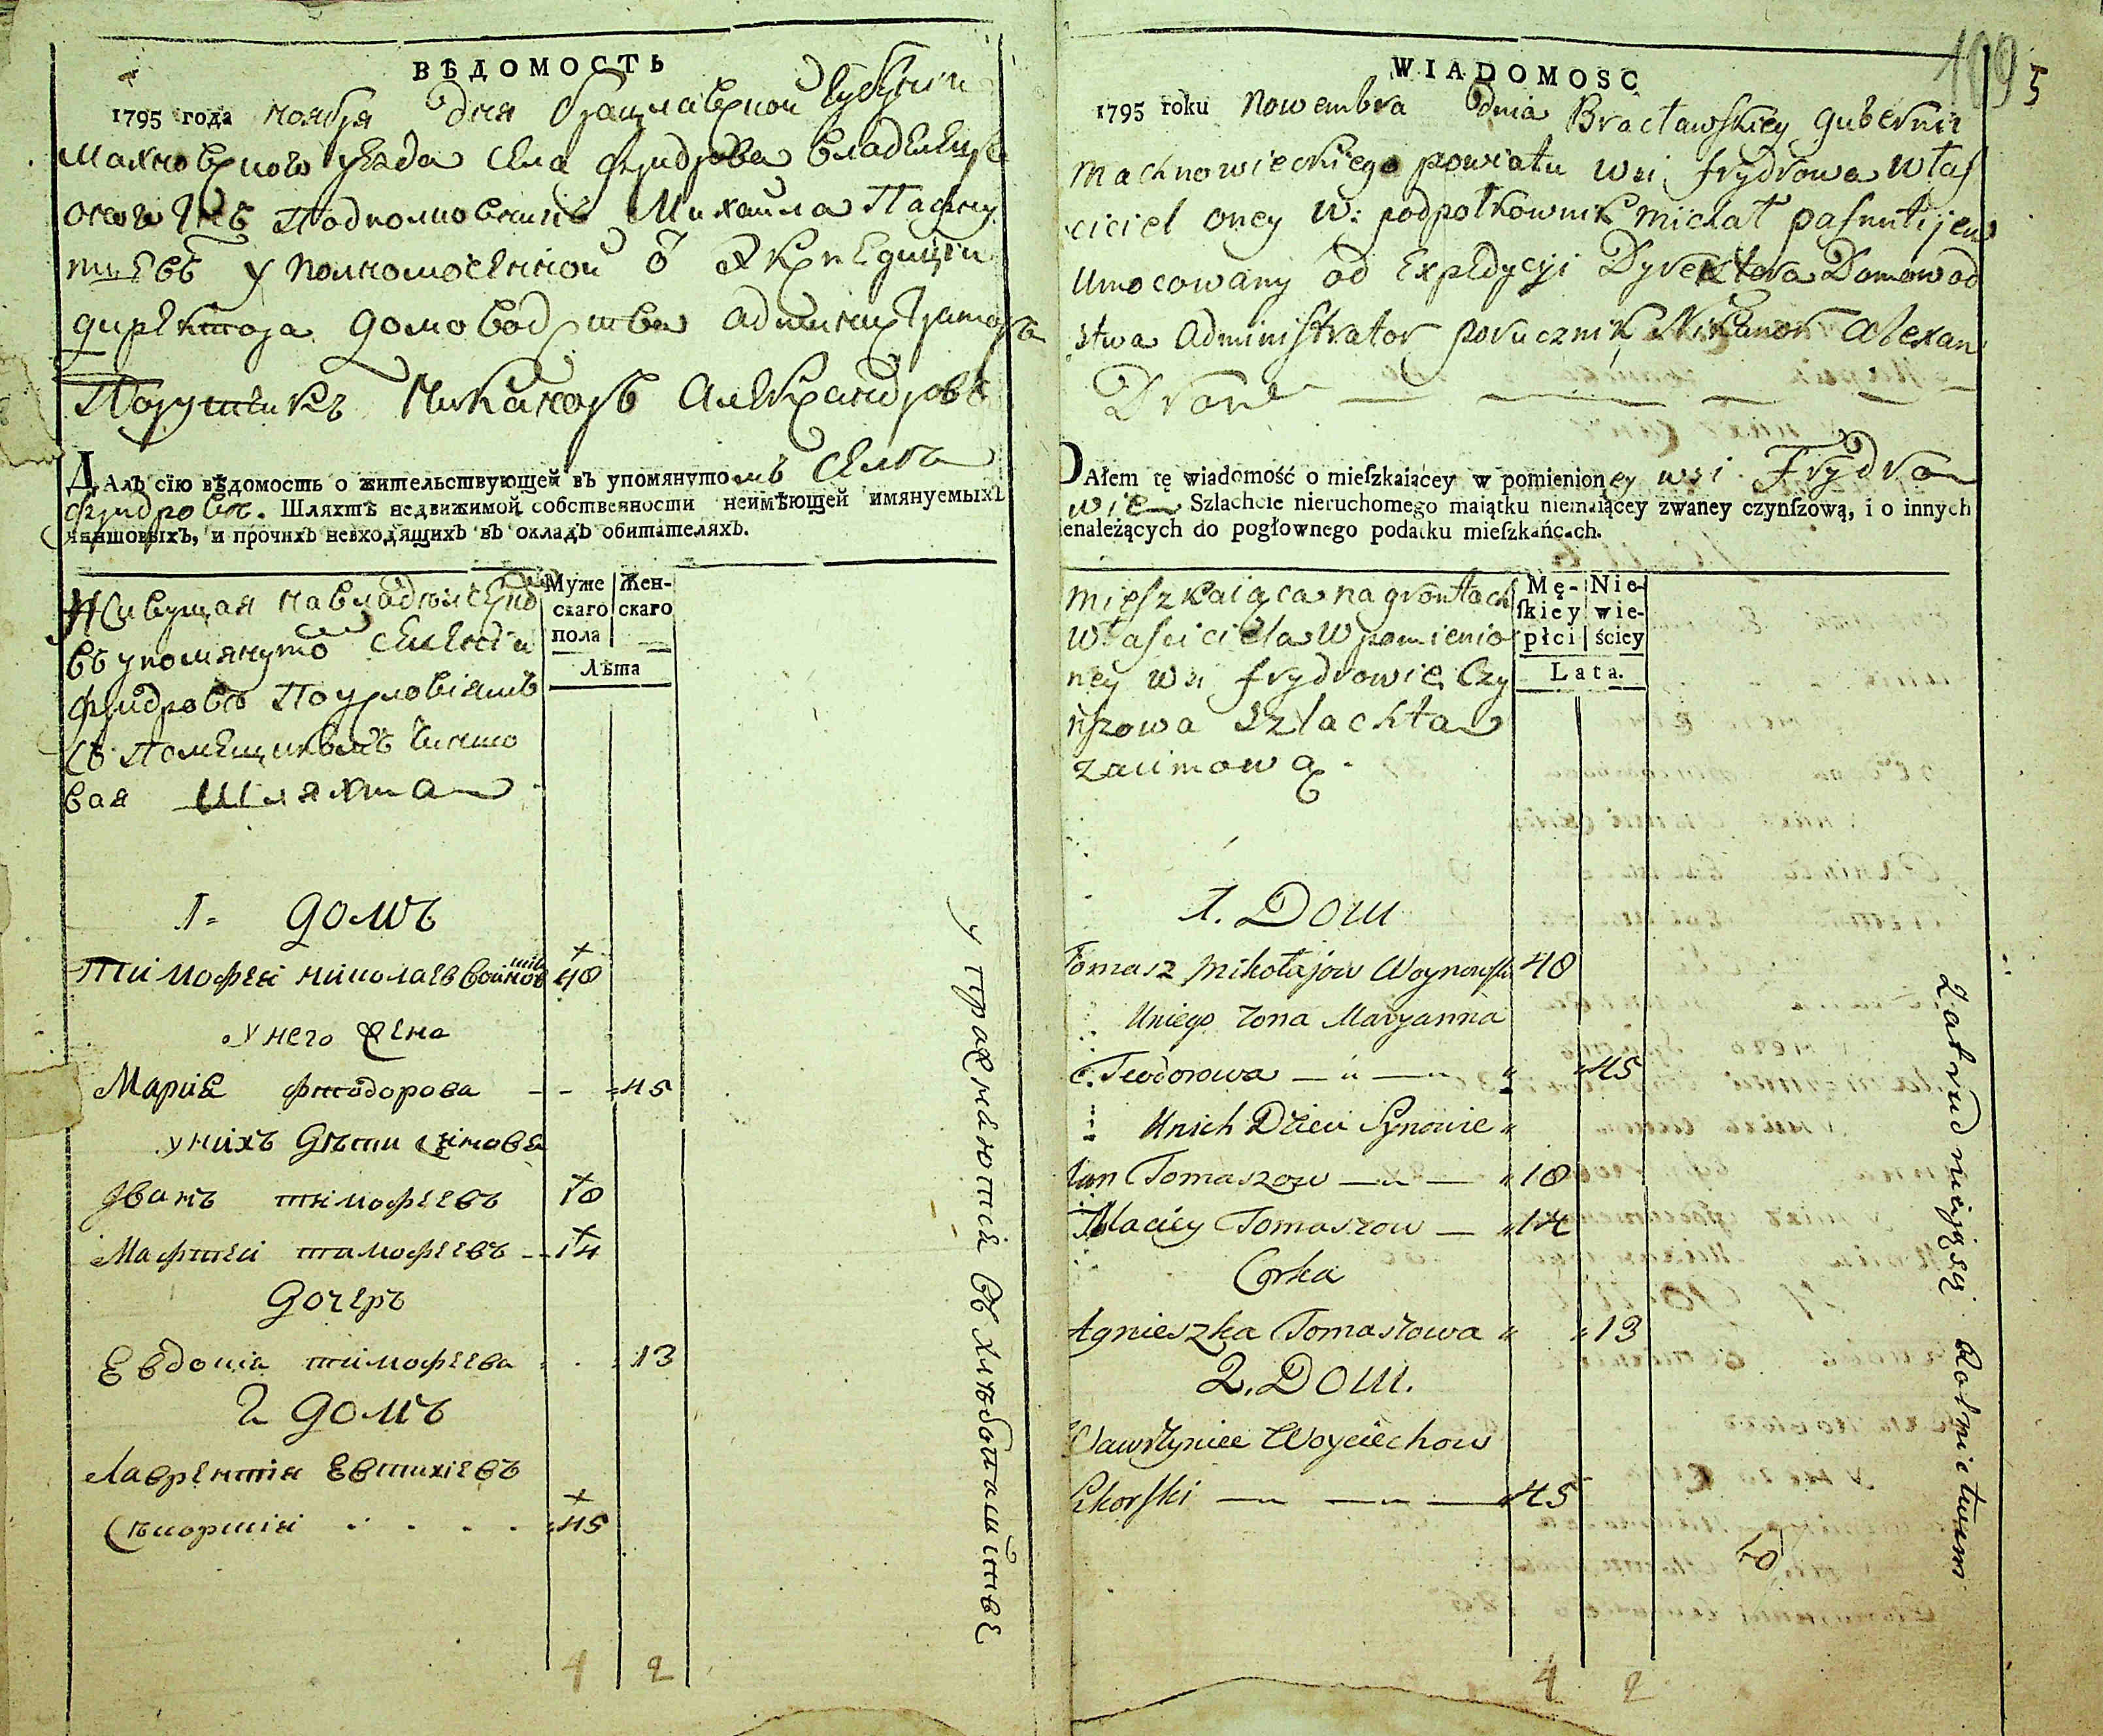 ВѢДОМОСТЬ
1795 года ноября дня брацлавской губернiи
махновского уезда села фридрова владелецъ
оного подполковникъ Михаила Пафну
тьевъ уполномоченной Экспедицiи
директора домоводства администраторъ
Порутчикъ Никаноръ Александровъ
ДАлъ сїю вѣдомость о жительствующей въ упомянутомъ Селѣ
фридровѣ. Шляхтѣ недвижимой собственности неимѣющей имянуемыхъ
чиншовыхъ, и прочихъ невходящихъ въ окладъ обитателяхъ.
Живущая
въ упомянуто селенiи
фридровѣ По условiямъ
съ Помещикомъ чиншо
вая шляхта
Муже
скаго
пола
Жен-
скаго
Лѣта
1 = домъ
Тимофей николаевъ войновъ 40
у него жена
Марiя федорова - - 45
у нихъ дѣти синове
Иванъ тимофеевъ 18
Мафтей тимофеевъ - - 14
дочеръ
Евдокiя тимофеева 13
2 домъ
Лаврентiй Евтихiевъ
Сѣкорскiй 45
4 2
упражнаютса въ хлѣбопашствѣ
WIADOMOSC
109 5
1795 roku Nowembra dnia Bracławskiey gubernii
Machnowieckiego powiatu wsi frydrowa właś
ciciel oney W: podpołkownik Michał pafnutijew
Umocowany od Expedycji Dyrektora Domowod
stwa Administrator porucznik Nikanor Alexan
Drow
DAłem tę wiadomość o mieſzkaiącey w pomienioney wsi Frydro
wie Szlachcie nieruchomego maiątku niemaiącey zwaney czynſzową, i o innych
nienależących do pogłownego podatku mieſzkańcach.
Mieszkaiąca na gruntach
właściciela w pomienio
ney wsi frydrowie Czy
nszowa szlachta
zaimowa
Mę-
ſkiey
płci
Nie-
wie-
ściey
Lata.
1. Dom
Tomasz Mikołajow Woynowski 40
Uniego żona Maryanna
Teodorowa 45
Unich Dzieci Synowie
Jan Tomaszow 18
Maciey Tomaszow 14
Corka
Agnieszka Tomaszowa 13
2. Dom.
Wawrzyniec Woyciechow
Sikorski 45
4 2
Zatrudniająsię Rolnictwem